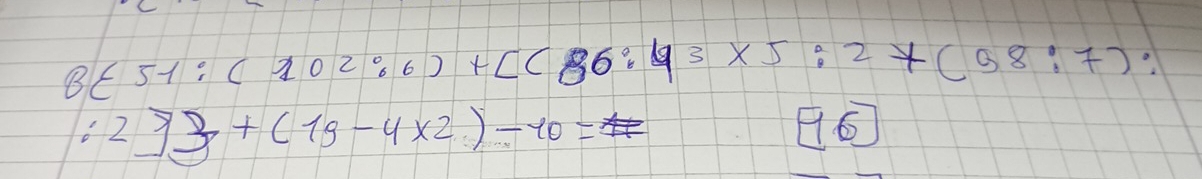 8{ 51 : (102:6) + [( 86:43 x 5 : 2 + (98:7) :
: 2 ]} + (19 - 4 x 2) - 10 = [16]